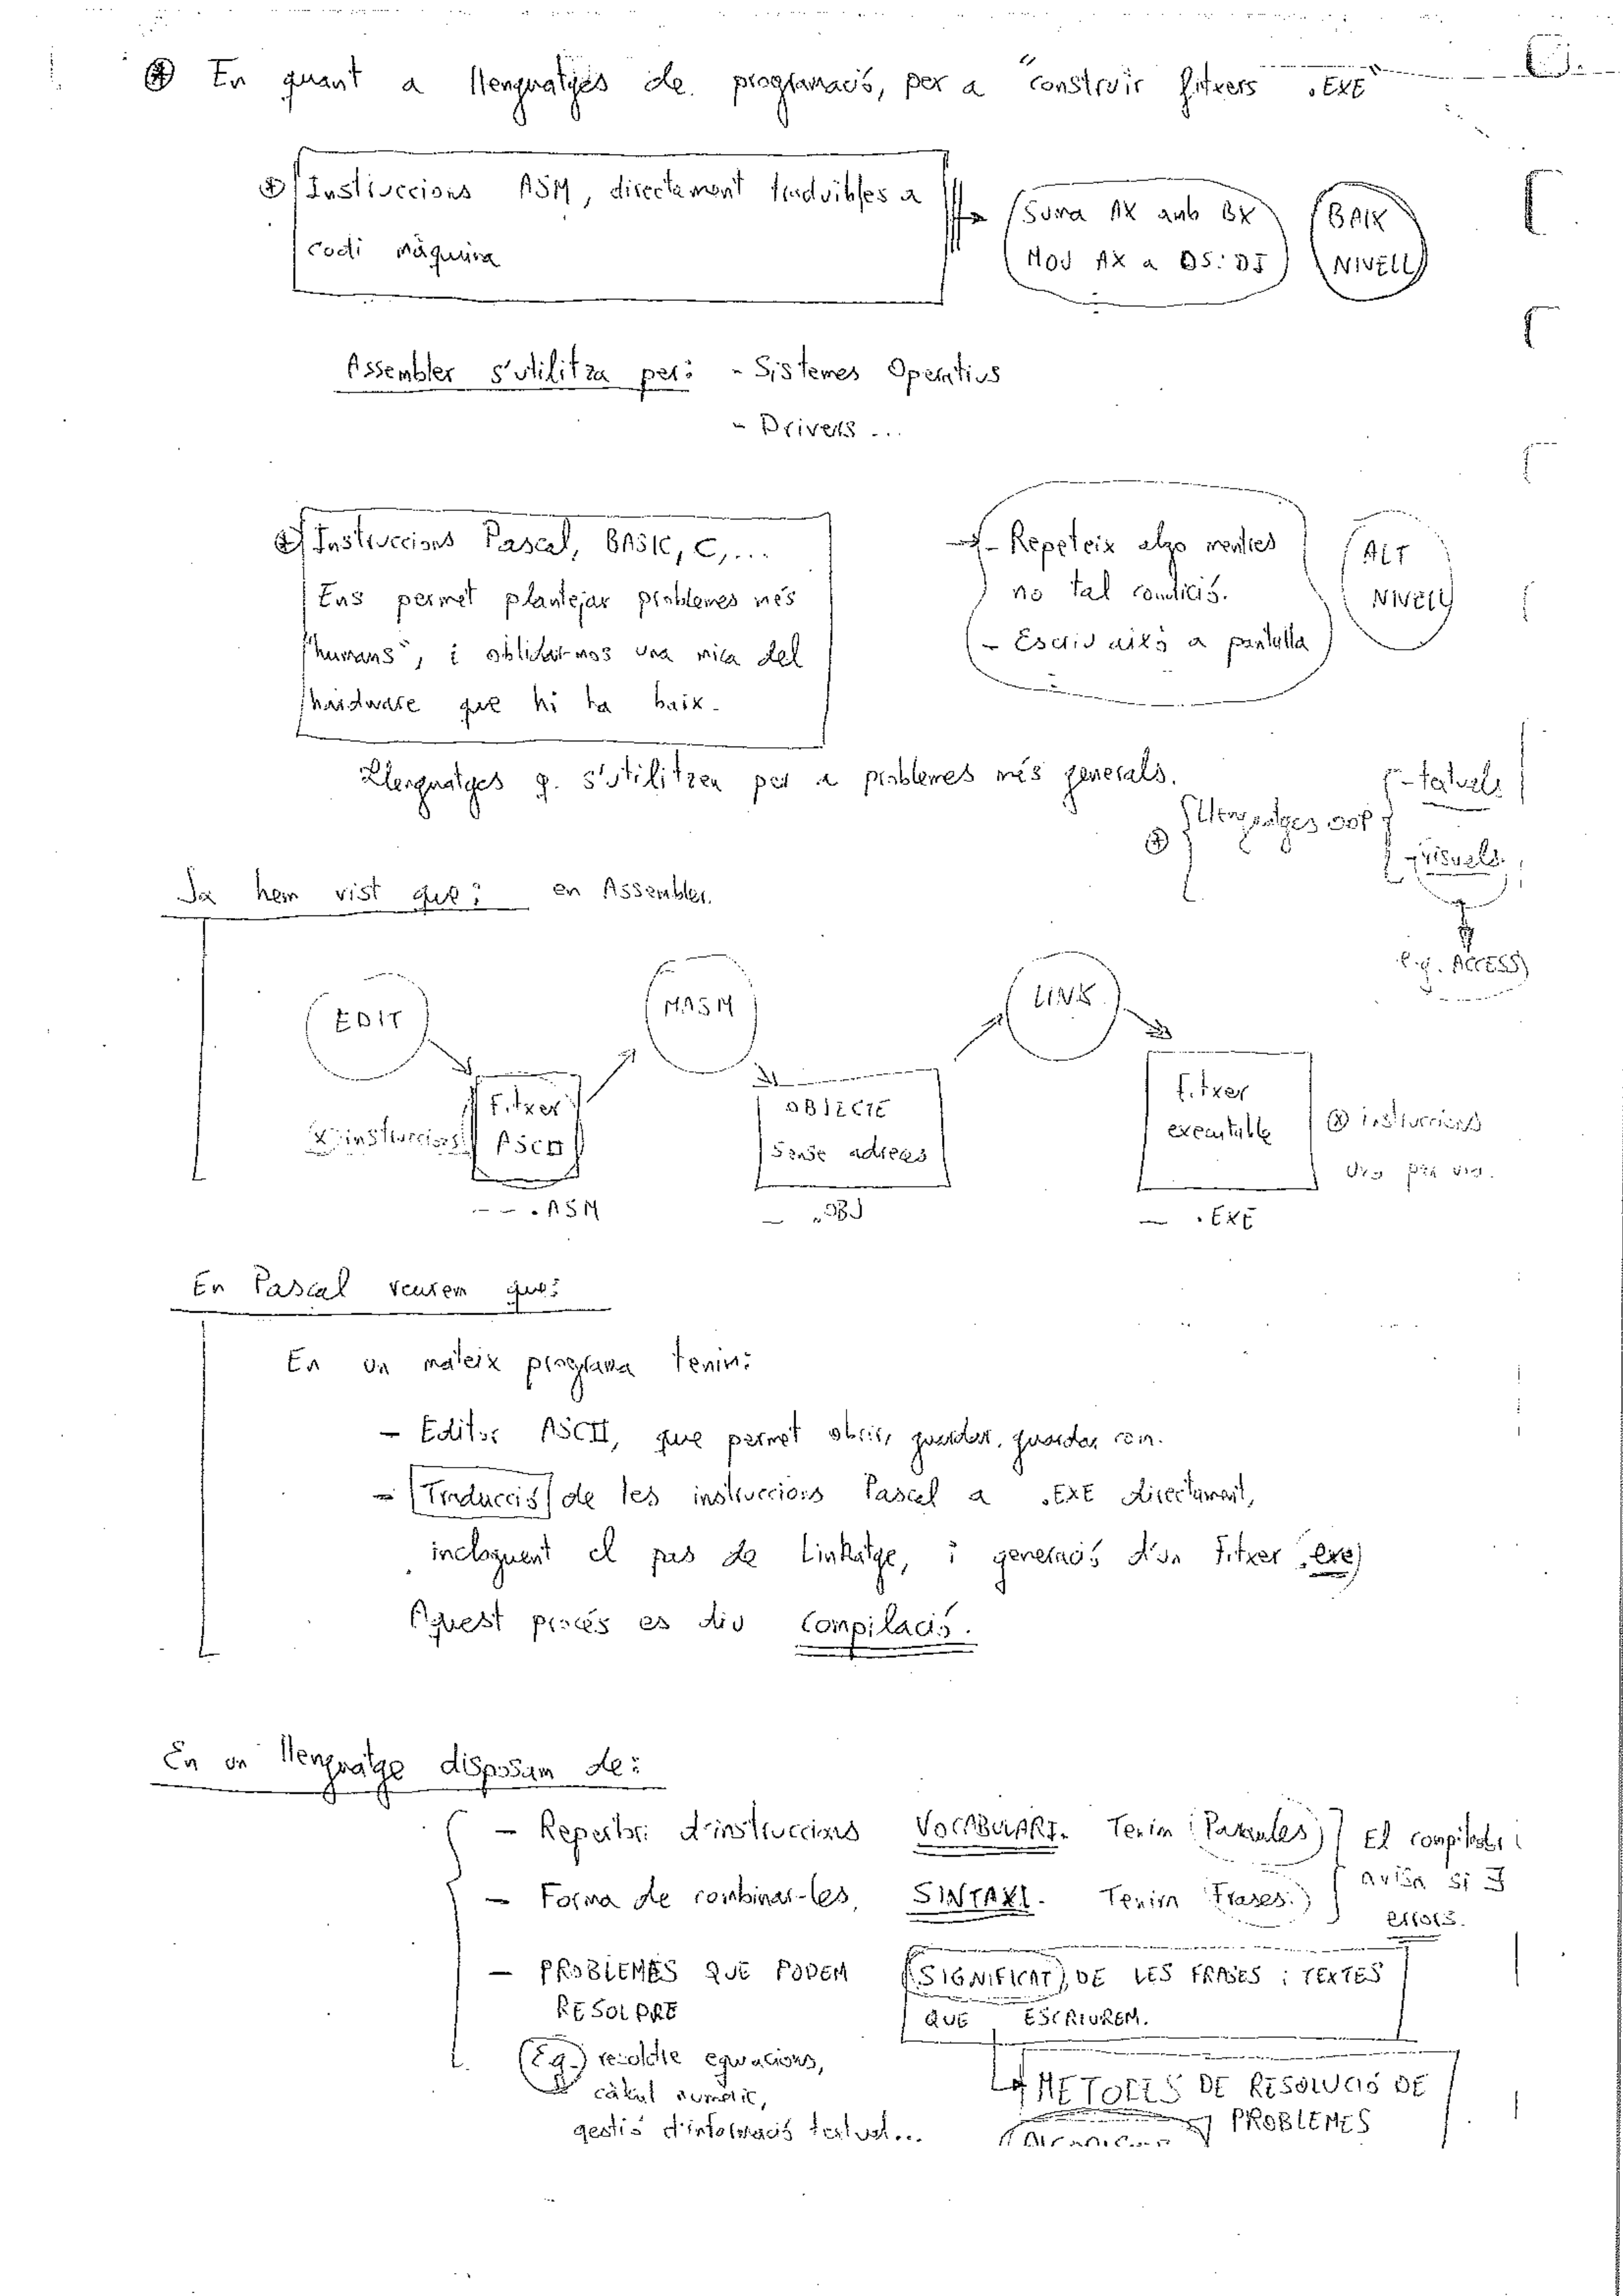 En quant a llenguatges de programació, per a "construir fitxers .EXE"
Instruccions ASM, directament traduibles a
codi màquina
Suma AX amb BX
MOV AX a DS:DI
BAIX
NIVELL
Assembler s'utilitza per: - Sistemes Operatius
- Drivers ...
Instruccions Pascal, BASIC, C, ...
Ens permet plantejar problemes més
"humans", i oblidar-nos una mica del
hardware que hi ha baix.
- Repeteix algo mentres
no tal condició.
- Escriu això a pantalla
ALT
NIVELL
Llenguatges q. s'utilitzen per a problemes més generals.
Llenguatges OOP
- textuals
- visuals
e.g. ACCESS
Ja hem vist que: en Assembler.
EDIT
MASM
LINK
Fitxer
ASCII
instruccions
--- .ASM
OBJECTE
Sense adreces
— .OBJ
Fitxer
executable
instruccions
una per una.
— .EXE
En Pascal veurem que:
En un mateix programa tenim:
- Editor ASCII, que permet obrir, guardar, guardar com.
- Traducció de les instruccions Pascal a .EXE directament,
incloguent el pas de Linkatge, i generació d'un Fitxer .exe
Aquest procés es diu compilació.
En un llenguatge disposam de:
- Repertori d'instruccions VOCABULARI. Tenim Paraules
- Forma de combinar-les, SINTAXI. Tenim Frases.
El compilador
avisa si ∃
errors.
- PROBLEMES QUE PODEM
RESOLDRE
SIGNIFICAT DE LES FRASES i TEXTES
QUE ESCRIUREM.
E.g. resoldre equacions,
càlcul numèric,
gestió d'informació textual...
METODES DE RESOLUCIÓ DE
PROBLEMES